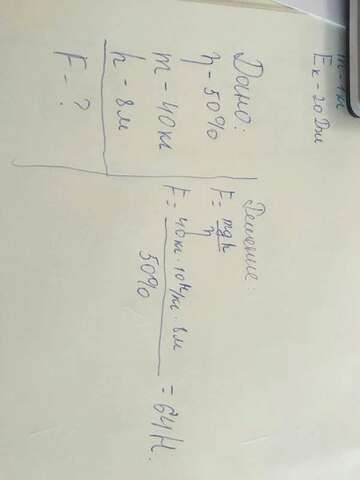 m - 1 кг
Eк - 20 Дж
Дано:
η - 50%
m - 40 кг
h - 8 м
F - ?
Решение:
F = mgh/η
F = 40 кг · 10 Н/кг · 8 м / 50% = 64 Н.